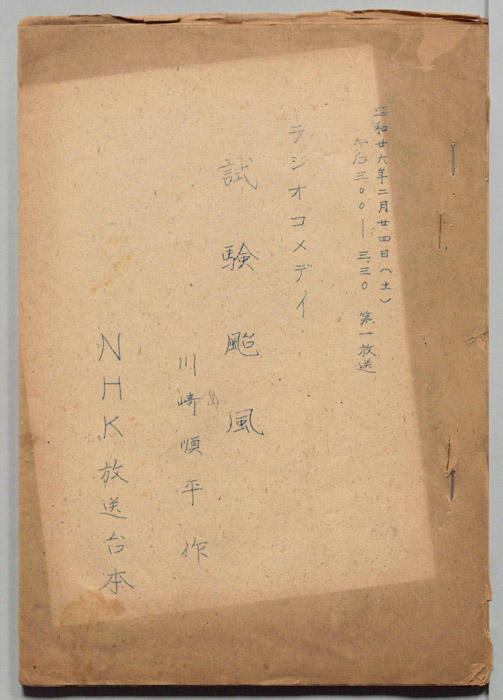 昭和廿六年二月廿四日(土)
午后三.〇〇―三.三〇 第一放送
ラジオコメデイ
試験颱風
川崎順平作
NHK放送台本